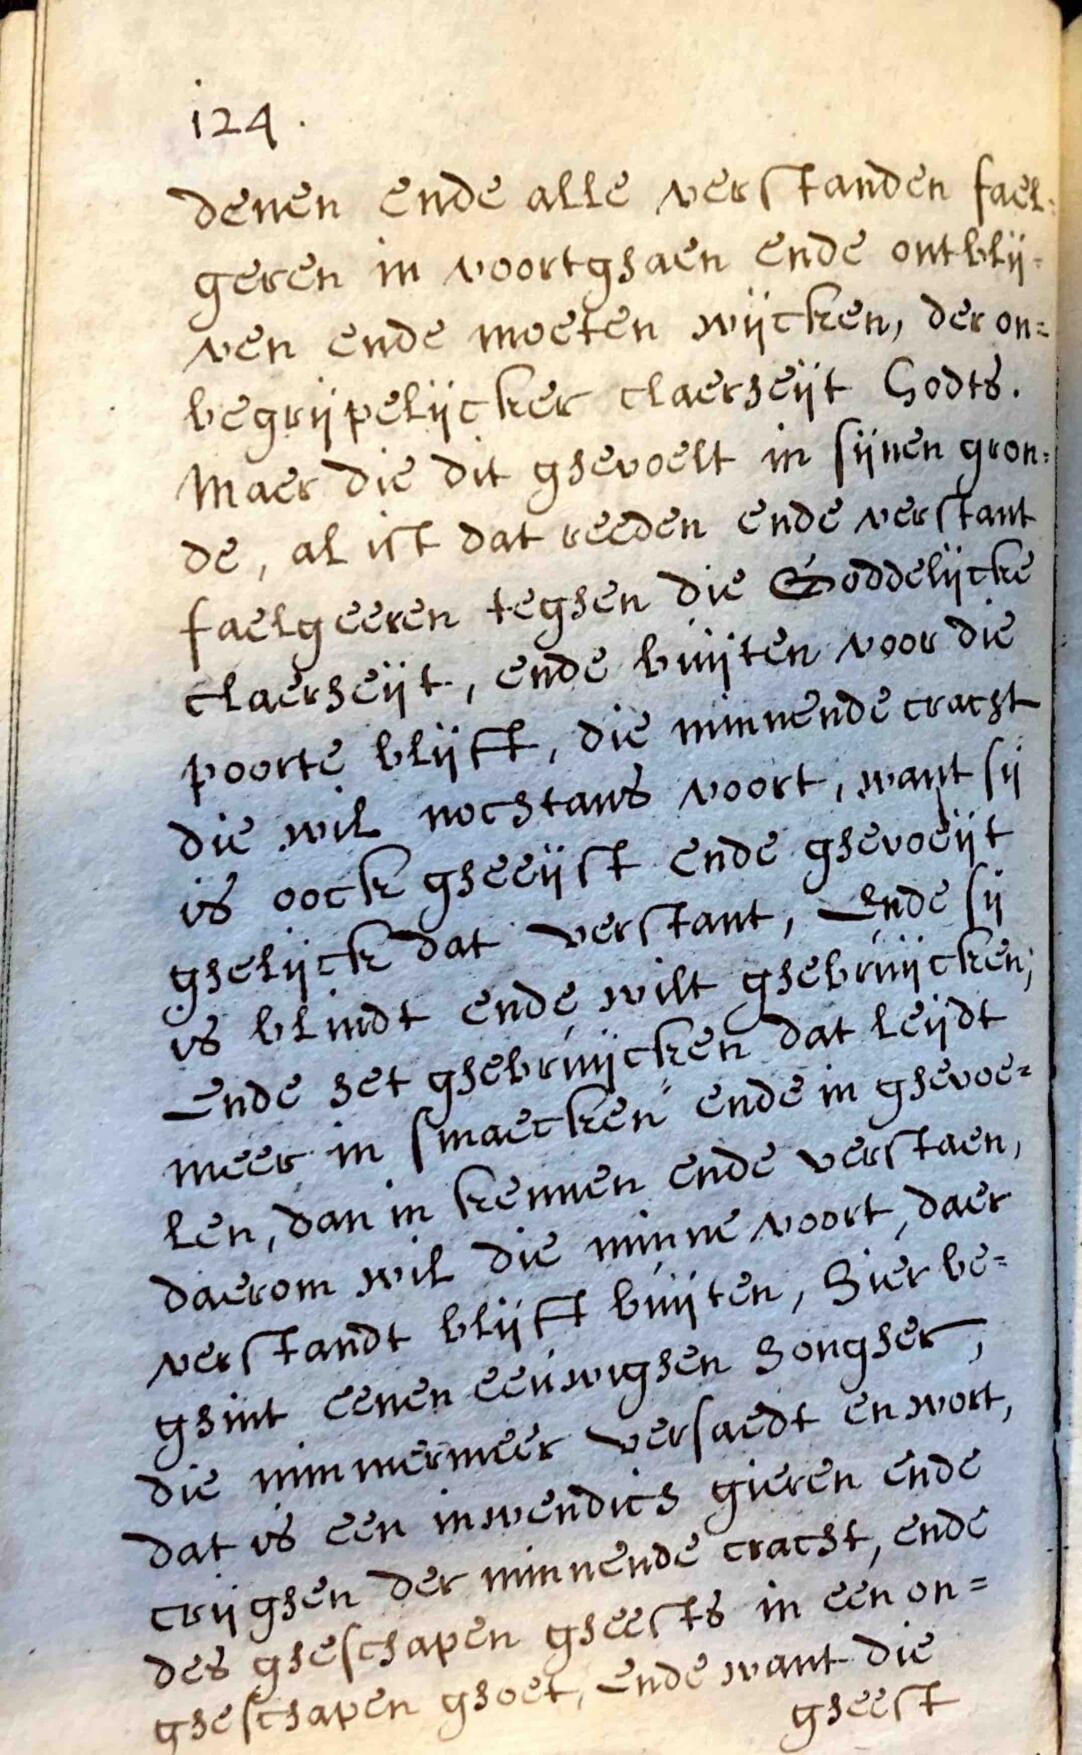 124.
denen ende alle verstanden fael=
geren in voortghaen ende ontblij=
ven ende moeten wijcken, der on=
begrijpelijcker claerheijt Godts.
Maer die dit ghevoelt in sijnen gron=
de, al ist dat reeden ende verstant
faelgeeren teghen die Goddelijcke
claerheijt, ende buijten voor die
poorte blijft, die minnende cracht
die wil nochtans voort, want sij
is oock gheeijst ende ghevoeijt
ghelijck dat verstant, Ende sij
is blindt ende wilt ghebruijcken,
Ende het ghebruijcken dat leijdt
meer in smaecken ende in ghevoe=
len, dan in kennen ende verstaen,
daerom wil die minne voort, daer
verstandt blijft buijten, Hier be=
ghint eenen eeuwighen Hongher,
die nimmermeer versaedt en wort,
dat is een inwendich gieren ende
crijghen der minnende cracht, ende
des gheschapen gheests in een on=
gheschapen ghoet, Ende want die
gheest